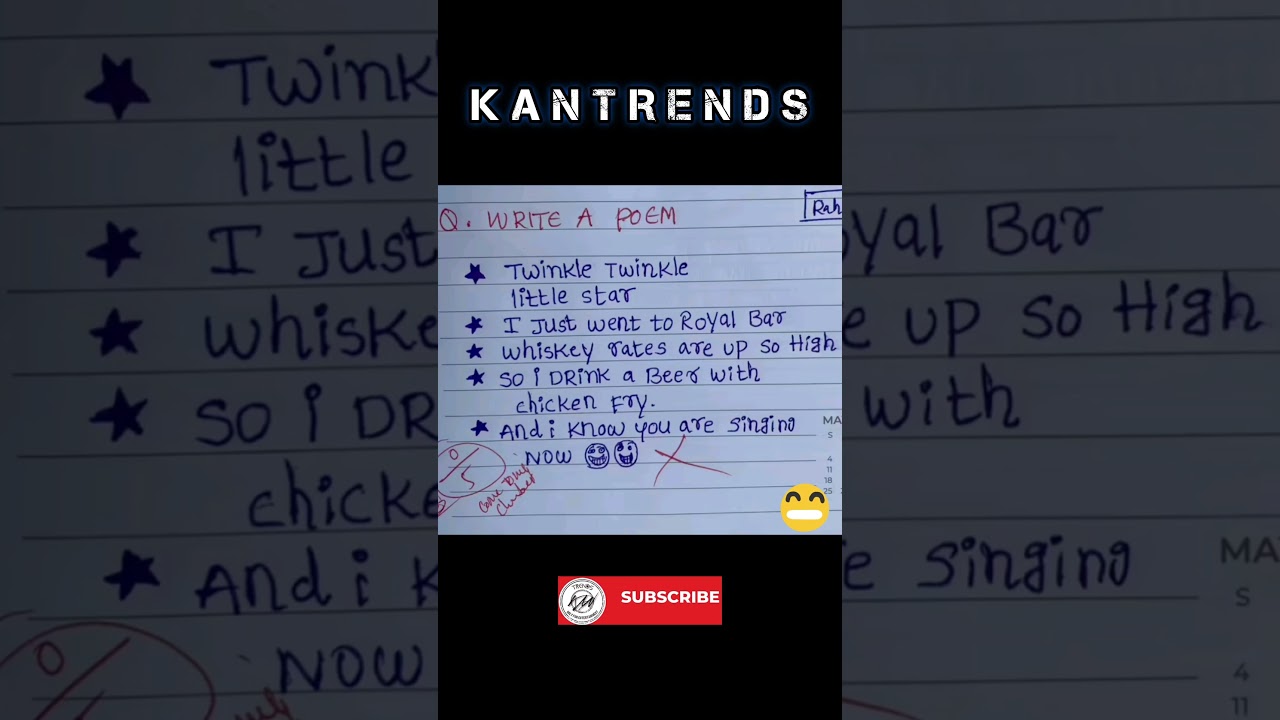 KANTRENDS
Q. WRITE A POEM
Rah
Twinkle Twinkle
little star
I Just went to Royal Bar
whiskey rates are up so High
SO i DRink a Beer with
chicken Fry.
And i know you are singing
NOW
0/5
MA
S
4
11
18
25
SUBSCRIBE